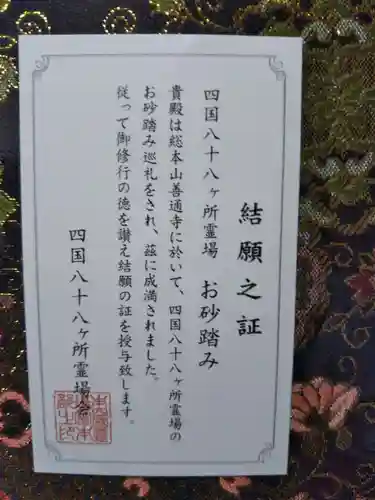 結願之証
四国八十八ヶ所霊場　お砂踏み
貴殿は総本山善通寺に於いて、四国八十八ヶ所霊場の
お砂踏み巡礼をされ、茲に成満されました。
従って御修行の徳を讃え結願の証を授与致します。
四国八十八ヶ所霊場会